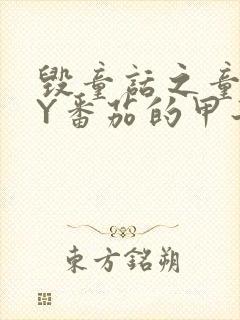 毁童话之童
Y番茄的甲
東方銘朔